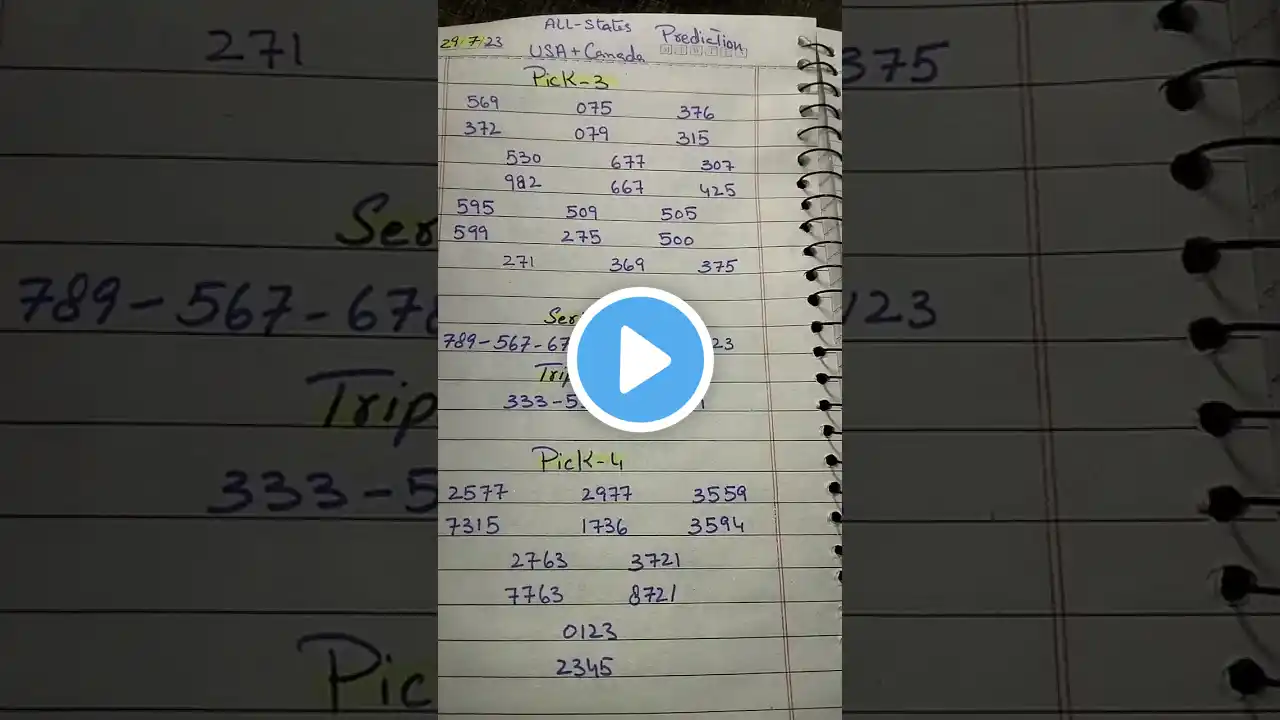 ALL-States
29.7.23 Prediction
USA+Canada
Pick-3
569 075 376
372 079 315
530 677 307
982 667 425
595 509 505
599 275 500
271 369 375
789-567-67
23
333-5
Pick-4
2577 2977 3559
7315 1736 3594
2763 3721
7763 8721
0123
2345